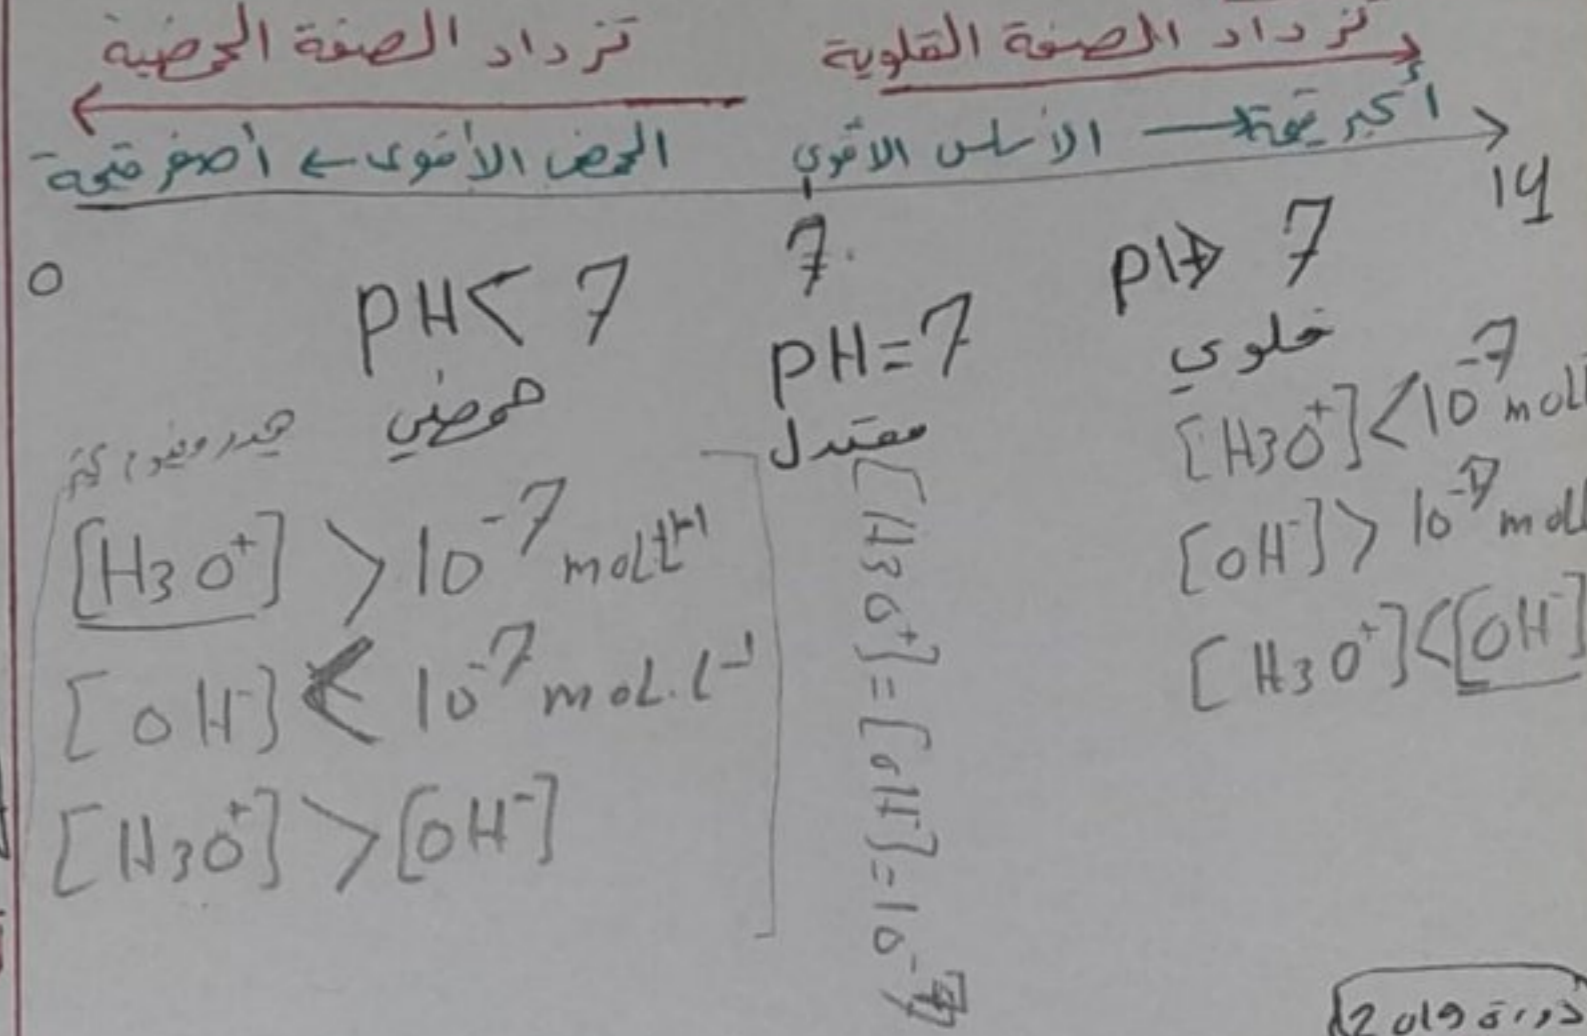 تزداد الصفة القلوية
تزداد الصفة الحمضية
الأساس الأقوى → أكبر قيمة
الحمض الأقوى ← أصغر قيمة
0
7
14
pH < 7
حمضي
[H3O+] > 10-7 mol.L-1
[OH-] < 10-7 mol.L-1
[H3O+] > [OH-]
pH=7
معتدل
[H3O+] = [OH-] = 10-7
pH > 7
قلوي
[H3O+] < 10-7 mol
[OH-] > 10-7 mol
[H3O+] < [OH-]
دورة